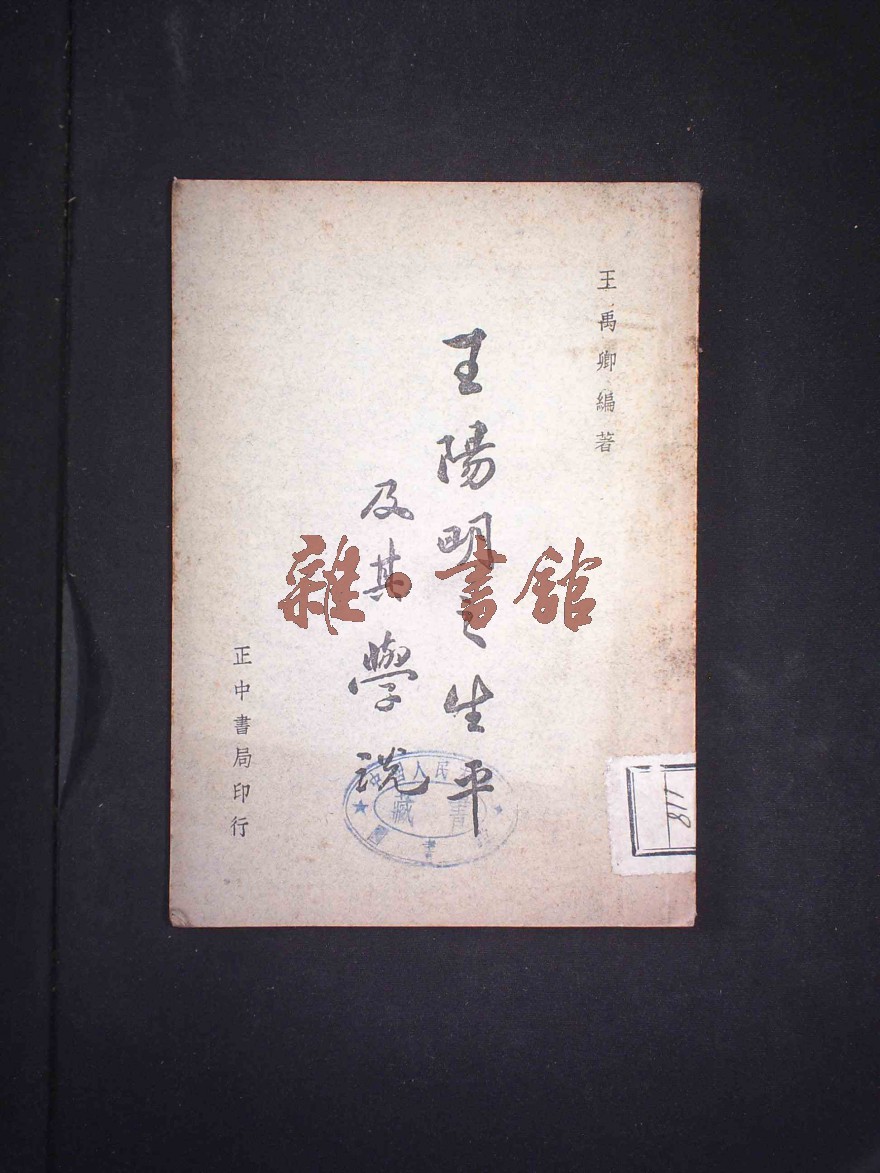 王禹卿編著
王陽明之生平
及其學說
正中書局印行
雜·書館
人民
藏書
書
811